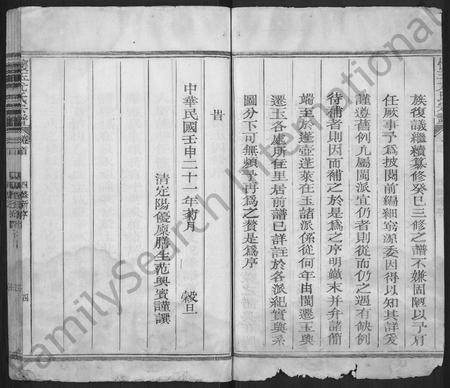 族復議繼續纂修癸巳三修之譜不嫌固陋以予肩
任厥事予為披閱前編細察源委因得以知其詳爰
謹遵舊例凡屬閩派宜仍者則從而仍之遇有缺例
待補者則因而補之於是為之序明繊末并弁諸簡
端至於逢壺蓬萊在玉諸派係從何年由閩遷玉與
遷玉各處所住里居前譜已詳註於各派紀實與系
圖分下可無煩予再為之贅是為序
旹
中華民國壬申二十一年菊月 穀旦
清定陽優廩膳生范興賓謹譔
四
FamilySearch International